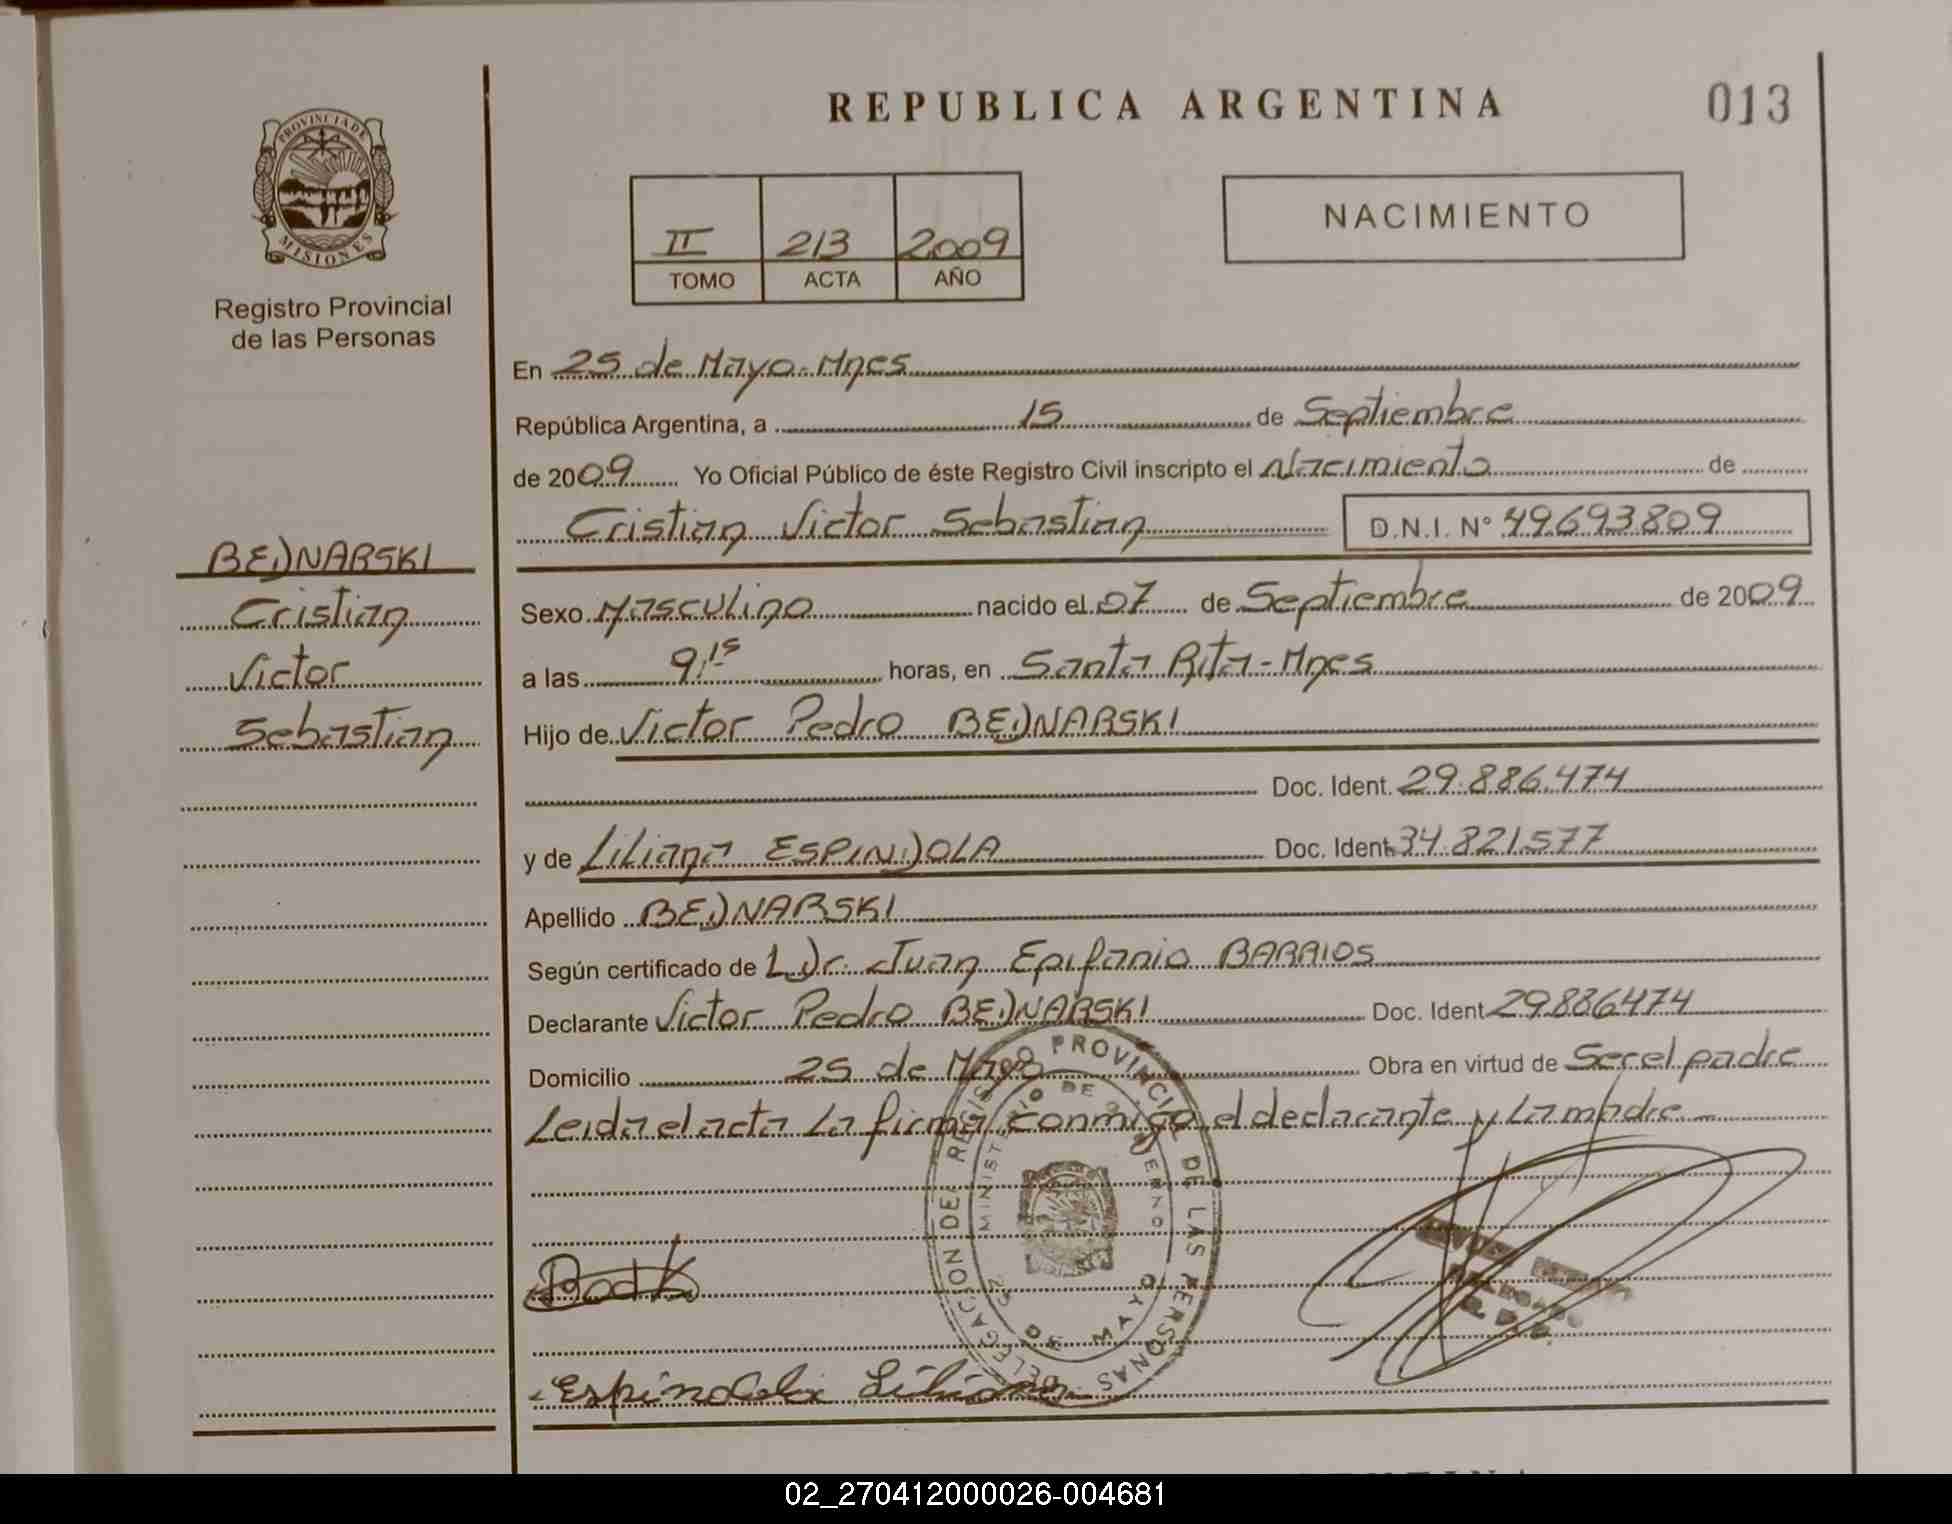 REPUBLICA ARGENTINA
013
PROVINCIA DE
MISIONES
Registro Provincial
de las Personas
II 213 2009
TOMO ACTA AÑO
NACIMIENTO
En 25 de Mayo-Mnes
República Argentina, a 15 de Septiembre
de 2009 Yo Oficial Público de éste Registro Civil inscripto el Nacimiento de
Cristian Victor Sebastian D.N.I. N° 49.693.809
BEDNARSKI
Cristian
Victor
Sebastian
Sexo Masculino nacido el 07 de Septiembre de 2009
a las 9,15 horas, en Santa Rita-Mnes
Hijo de Victor Pedro BEDNARSKI
Doc. Ident. 29.886.474
y de Liliana ESPINDOLA Doc. Ident. 34.821.577
Apellido BEDNARSKI
Según certificado de Dr. Juan Epifanio BARRIOS
Declarante Victor Pedro BEDNARSKI Doc. Ident 29.886474
Domicilio 25 de Mayo Obra en virtud de Ser el padre
Leida el acta La firma conmigo el declarante y La madre
DELEGACION DEL REGISTRO PROVINCIAL DE LAS PERSONAS
MINISTERIO DE GOBIERNO
25 DE MAYO
Espindola Liliana
02_270412000026-004681